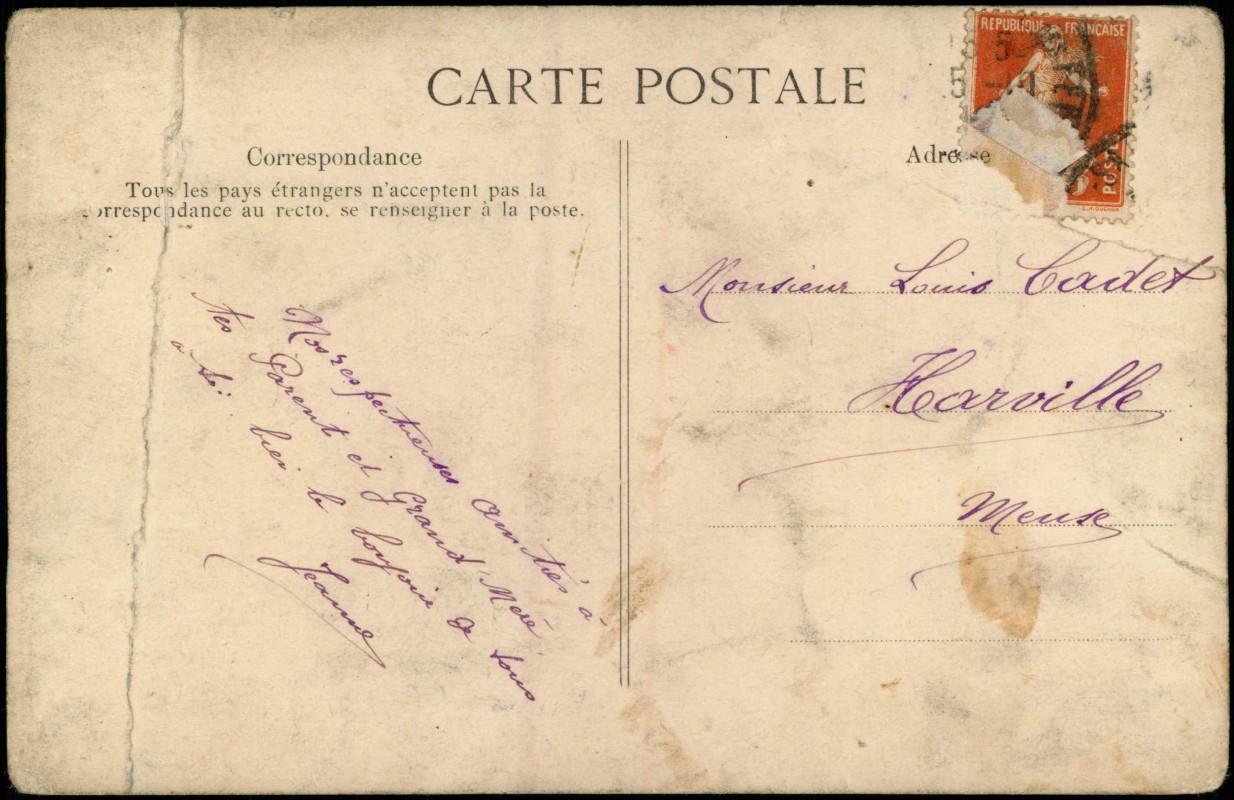 CARTE POSTALE
RÉPUBLIQUE FRANÇAISE
POSTE
Correspondance
Tous les pays étrangers n'acceptent pas la
orrespondance au recto, se renseigner à la poste.
Adresse
Monsieur Louis Cadet
Harville
Meuse
Nos respectueuses amitiés à
tes Parent et Grand Meré
a toi bei le bonjour de tous
Jeanne